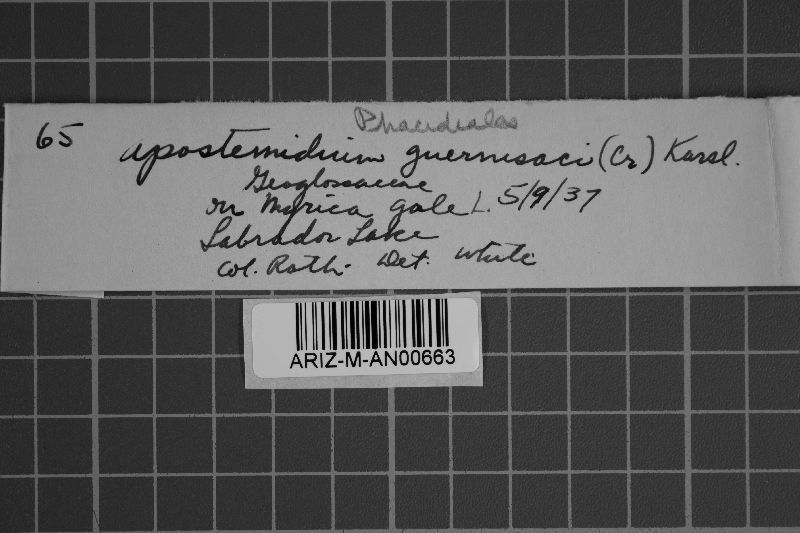 Phacidiales
65 Apostemidium guernisaci (Cr) Karsl.
Geoglossaceae
on Myrica gale L. 5/9/37
Labrador Lake
Col. Rath. Det. White
ARIZ-M-AN00663